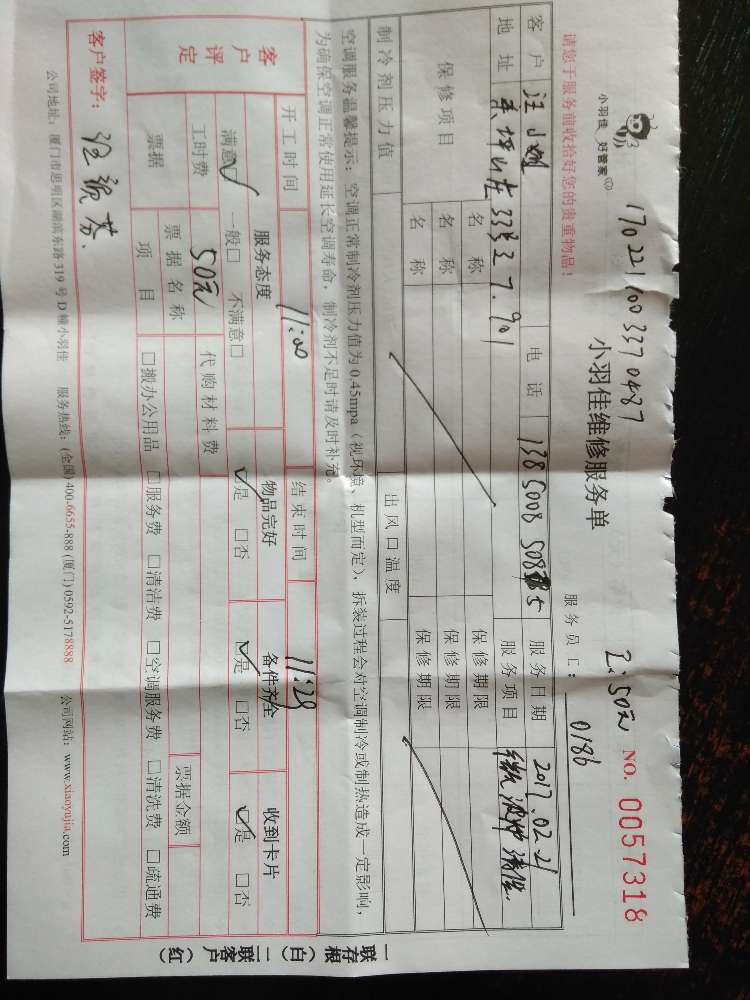 1702211003370487
2:50元 NO. 0057318
小羽佳 好管家
小羽佳维修服务单
请您于服务前收拾好您的贵重物品！
服务员工：0186
客户 电话 服务日期 2017.02.21
地址 服务项目
保修项目 名称 保修期限
名称 保修期限
名称 保修期限
制冷剂压力值 出风口温度
空调服务温馨提示：空调正常制冷剂压力值为0.45mpa（视环境、机型而定），拆装过程会对空调制冷或制热造成一定影响，
为确保空调正常使用延长空调寿命，制冷剂不足时请及时补充。
开工时间 11:00 结束时间 11:29
客户评定 服务态度 物品完好 备件齐全 收到卡片
满意☑ 一般□ 不满意□ ☑是 □否 ☑是 □否 ☑是 □否
工时费 50元 代购材料费
票据 票据名称 票据金额
项目 □搬办公用品 □服务费 □清洁费 □空调服务费 □清洗费 □疏通费
客户签字：
公司地址：厦门市思明区湖滨东路319号D幢小羽佳 服务热线：(全国)400-6655-888 (厦门)0592-5178888 公司网站：www.xiaoyujia.com
一联存根（白） 二联客户（红）